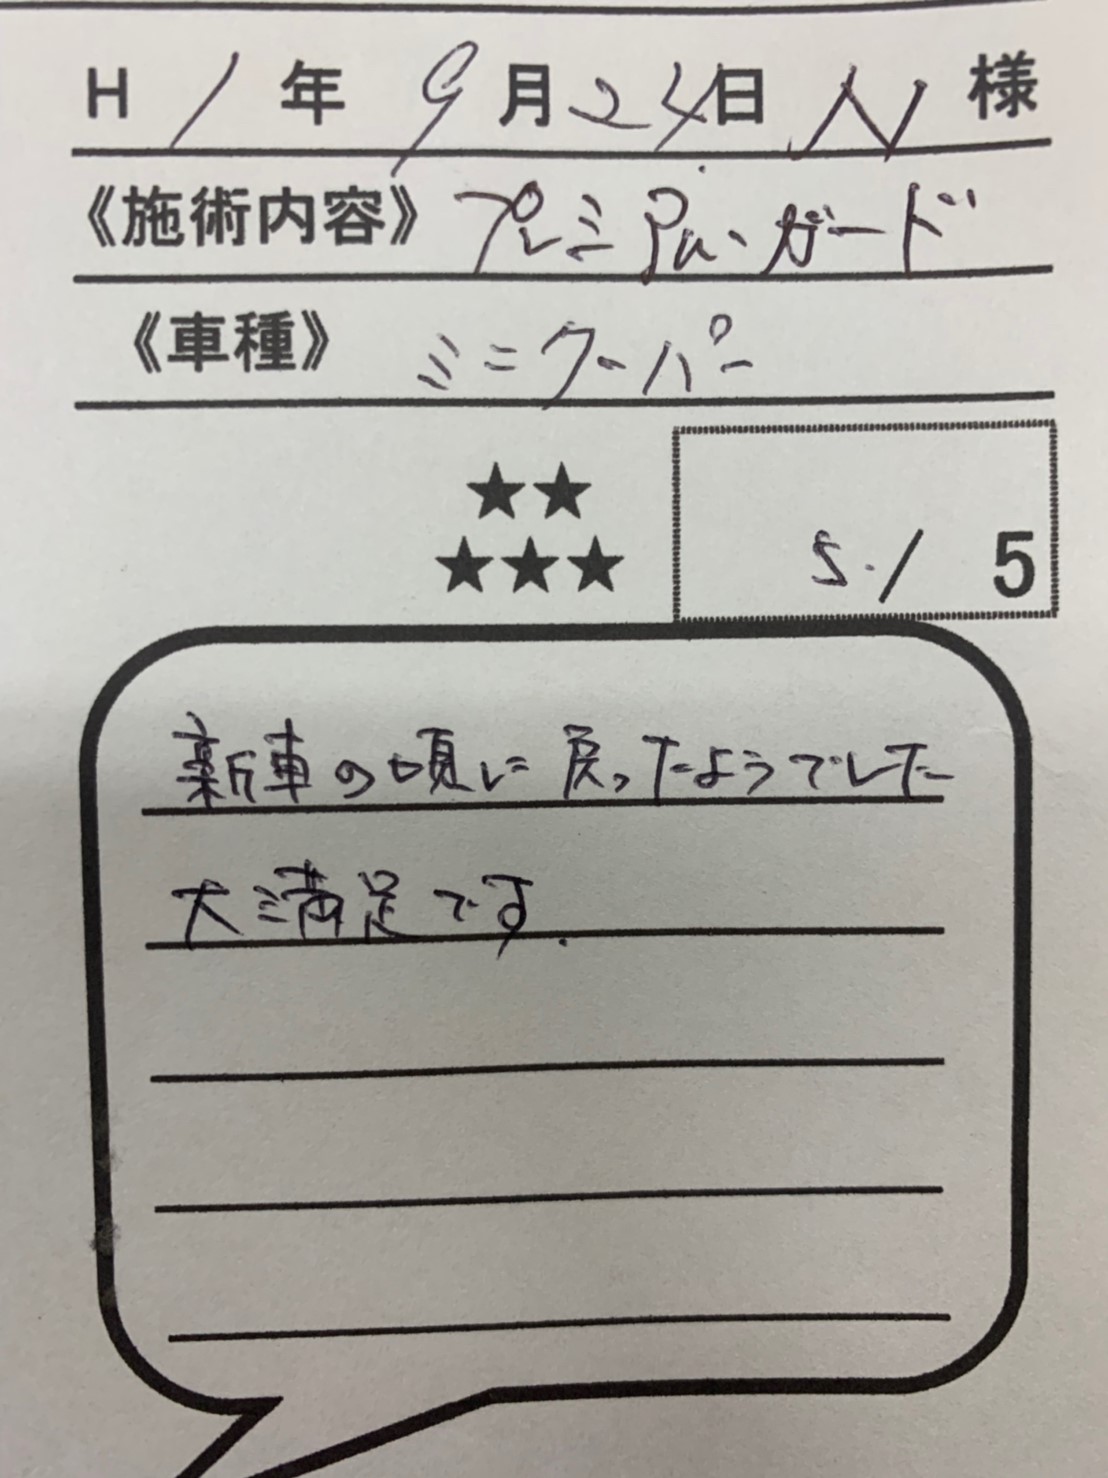 H 1 年 9 月 24 日 N 様
《施術内容》 プレミアム・ガード
《車種》 ミニクーパー
★★
★★★
5./ 5
新車の頃に戻ったようでした
大満足です.